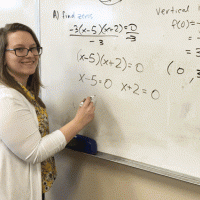 A) find zeros
-3(x-5)(x+2)=0
-3 -3
(x-5)(x+2)=0
x-5=0 x+2=0
Vertical
f(0)=-
=
= 3
(0, 3